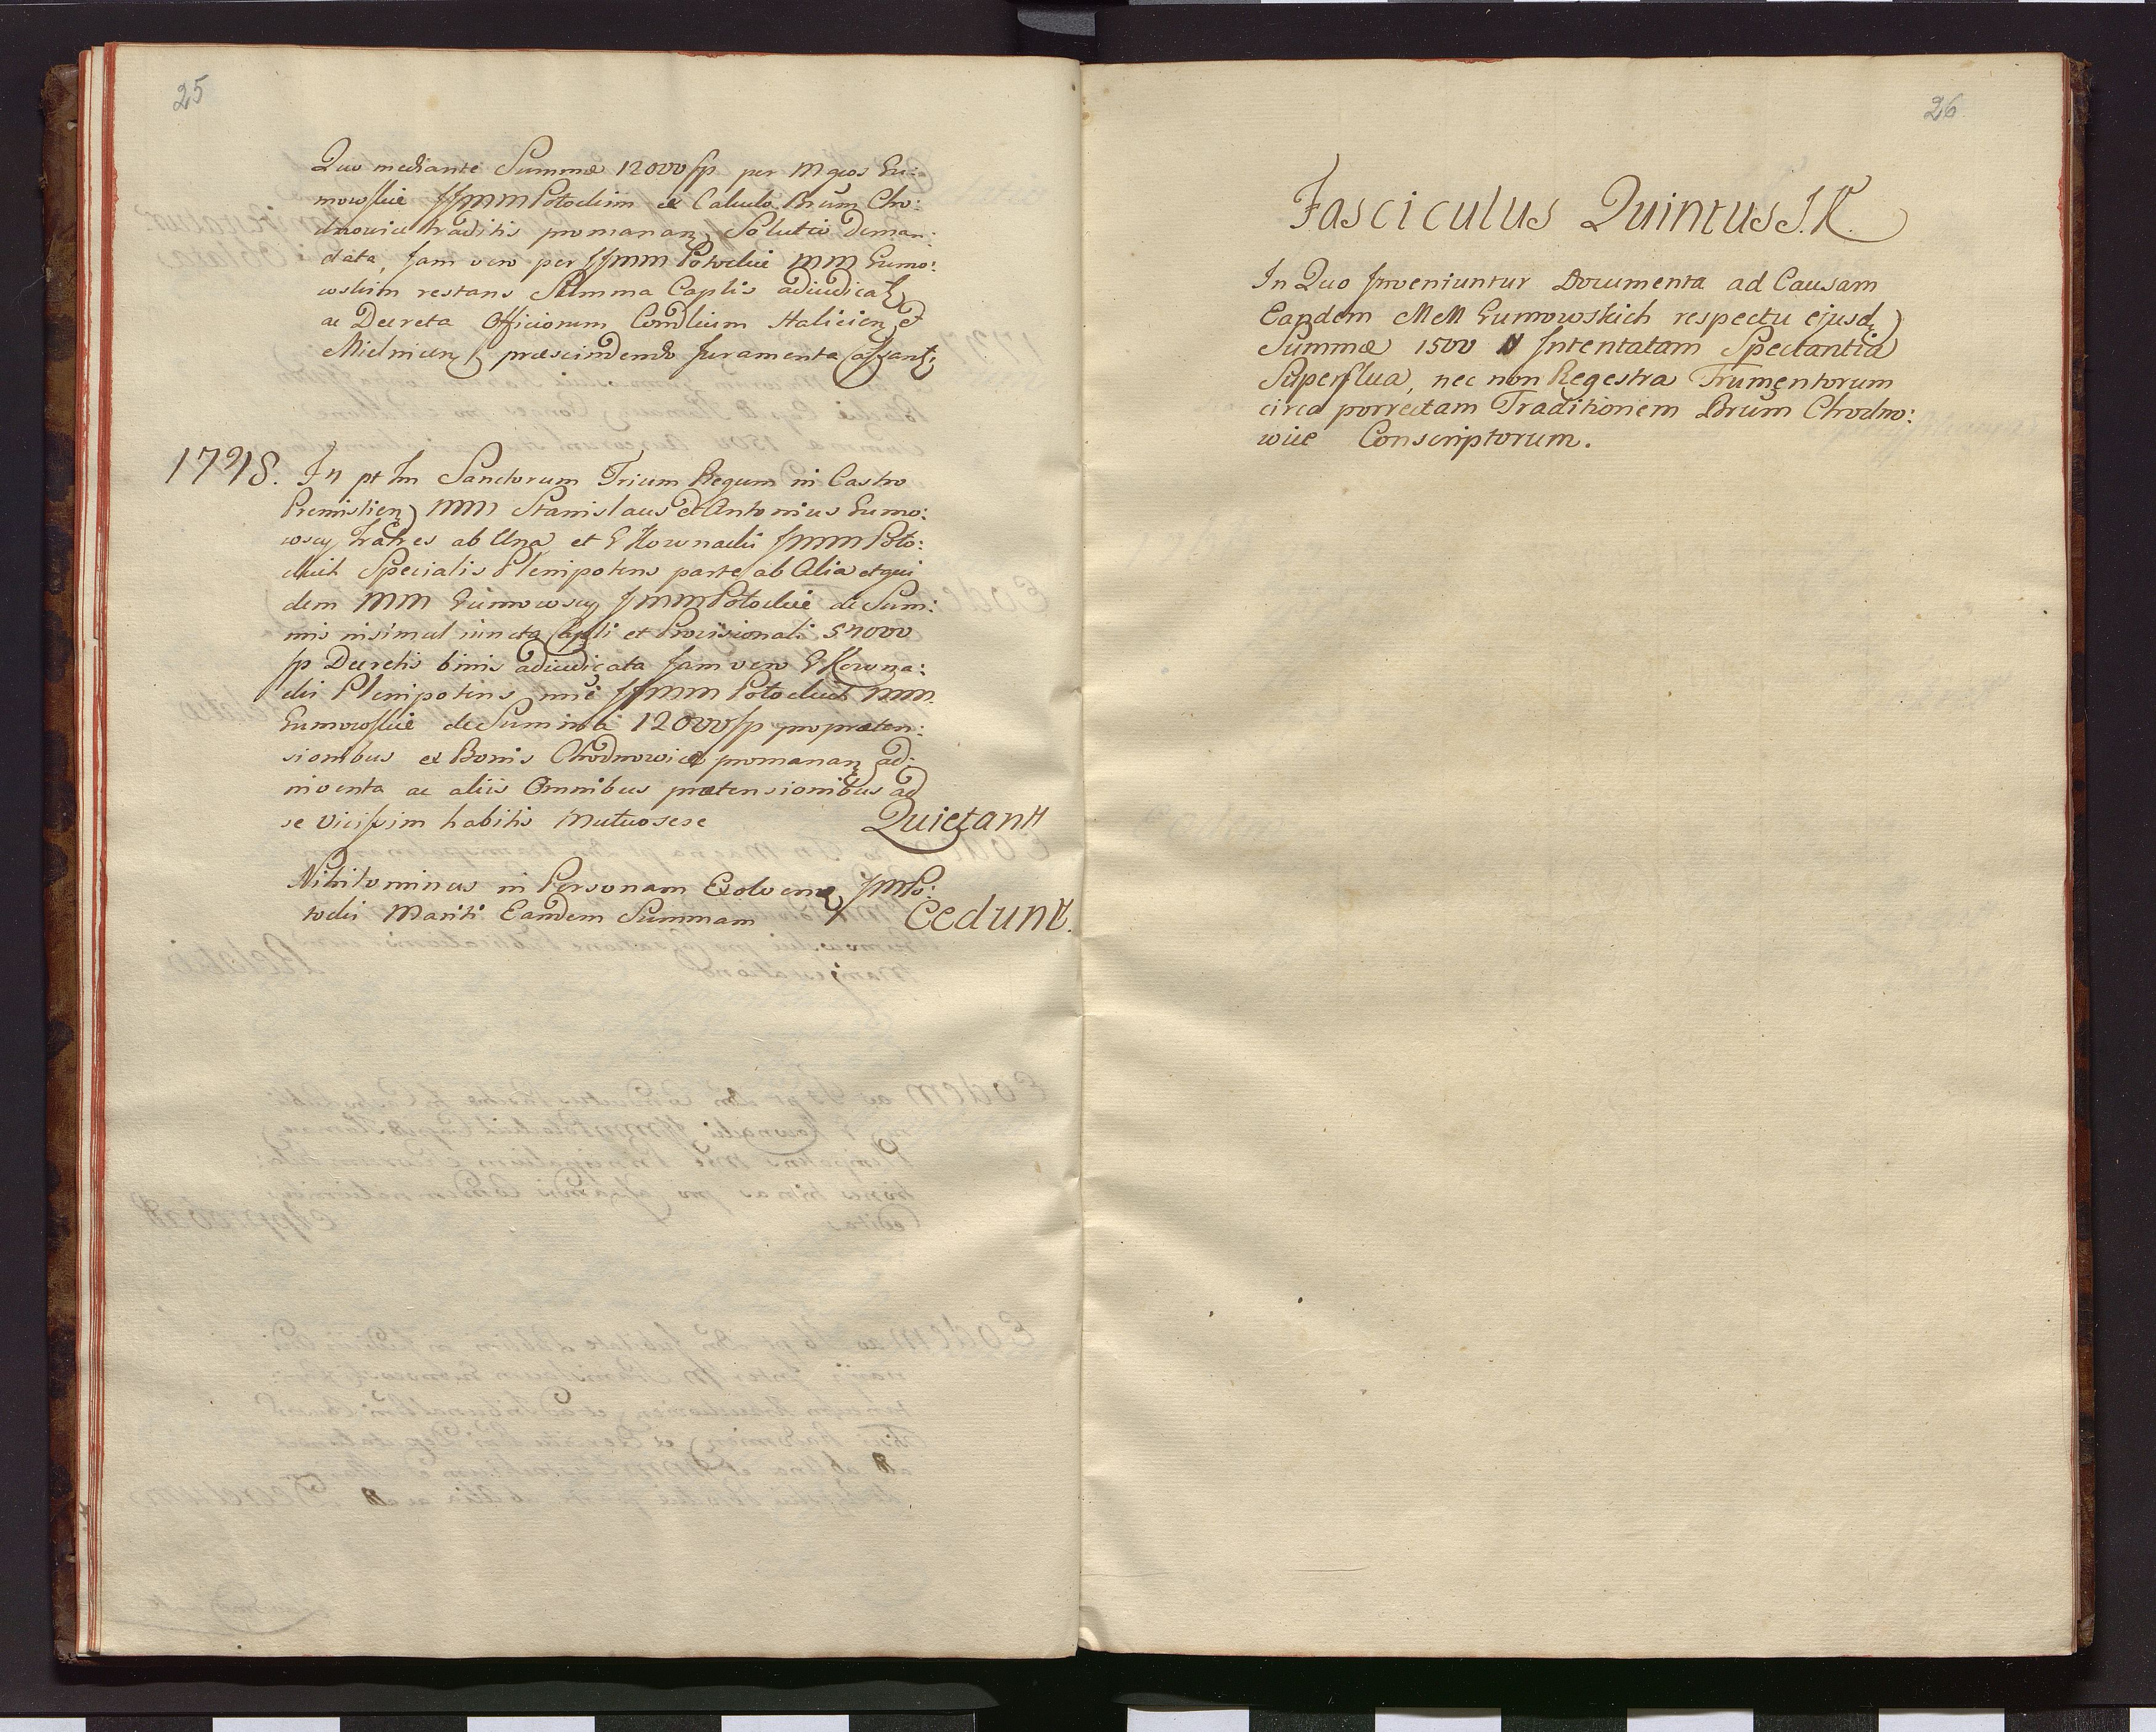 25
Quo mediante Summæ 12000 fp per Mgcos Gu:
mowskie JJMM Potockim ex Calculo Bnum Cho:
dnowice traditis promanan Solutio deman:
data, Jam vero per JJMM Potockie MM Gumo:
wskim restans Summa Caplis adiudicat
ac Decreta Officiorum Comdlium Halicien et
Mielnicen præscindendo Juramenta cassant
1798. In pt Tm Sanctorum Trium Regum in Castro
Premislien MM Stanislaus et Antonius Gumo:
wscy Fratres ab Una et G Kownacki JMM Poto:
ckich Specialis Plenipotens parte ab Alia et qui
dem MM Gumowscy JMM Potockie de Sum:
mis insimul iuncta Capli et Provisionali 54000
fp Decretis binis adiudicata Jam vero G Kowna:
cki Plenipotens nnie JJMM Potockich MM
Gumowskie de Summa 12000 fp pro præten:
sionibus ex Bonis Chodnowice promanan ad:
inventa ac aliis Omnibus prætensionibus ad
se vicissim habitis Mutuo sese Quietant
Nihilominus in Personam Exolven JMPo:
tocki Mariti Eandem Summam Cedunt.
26
Fasciculus Quintus J. K.
In Quo Jnveniuntur Documenta ad Causam
Eandem MM Gumowskich respectu ejusd
Summæ 1500 # Jntentatam Spectantia
Superflua, nec non Regestra Frumentorum
circa porrectam Traditionem Bnum Chodno:
wice Conscriptorum.